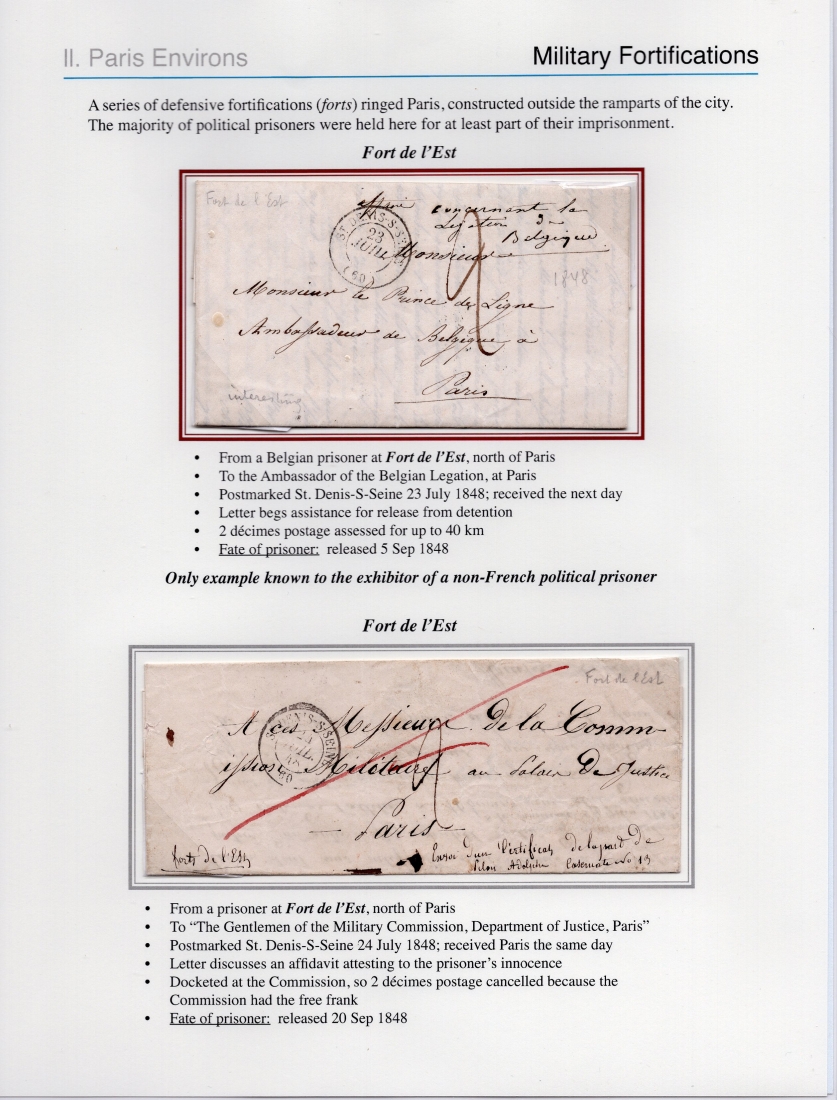 II. Paris Environs
Military Fortifications
A series of defensive fortifications (forts) ringed Paris, constructed outside the ramparts of the city.
The majority of political prisoners were held here for at least part of their imprisonment.
Fort de l'Est
Fort de l'Est
concernant la
Légation de
Belgique
ST DENIS-S-SEINE
23
JUIL
(60)
Monsieur
1848
Monsieur le Prince de Ligne
Ambassadeur de Belgique à
Paris
interesting
• From a Belgian prisoner at Fort de l'Est, north of Paris
• To the Ambassador of the Belgian Legation, at Paris
• Postmarked St. Denis-S-Seine 23 July 1848; received the next day
• Letter begs assistance for release from detention
• 2 décimes postage assessed for up to 40 km
• Fate of prisoner: released 5 Sep 1848
Only example known to the exhibitor of a non-French political prisoner
Fort de l'Est
Fort de l'Est
A ces Messieurs De la Comm-
ission Militaire au Palais De Justice
ST DENIS-S-SEINE
JUIL.
48
(60)
Paris
forts de l'Est
Envoi d'un Certificat de la part de
Adolphe Casemate No 13
• From a prisoner at Fort de l'Est, north of Paris
• To “The Gentlemen of the Military Commission, Department of Justice, Paris”
• Postmarked St. Denis-S-Seine 24 July 1848; received Paris the same day
• Letter discusses an affidavit attesting to the prisoner's innocence
• Docketed at the Commission, so 2 décimes postage cancelled because the
Commission had the free frank
• Fate of prisoner: released 20 Sep 1848